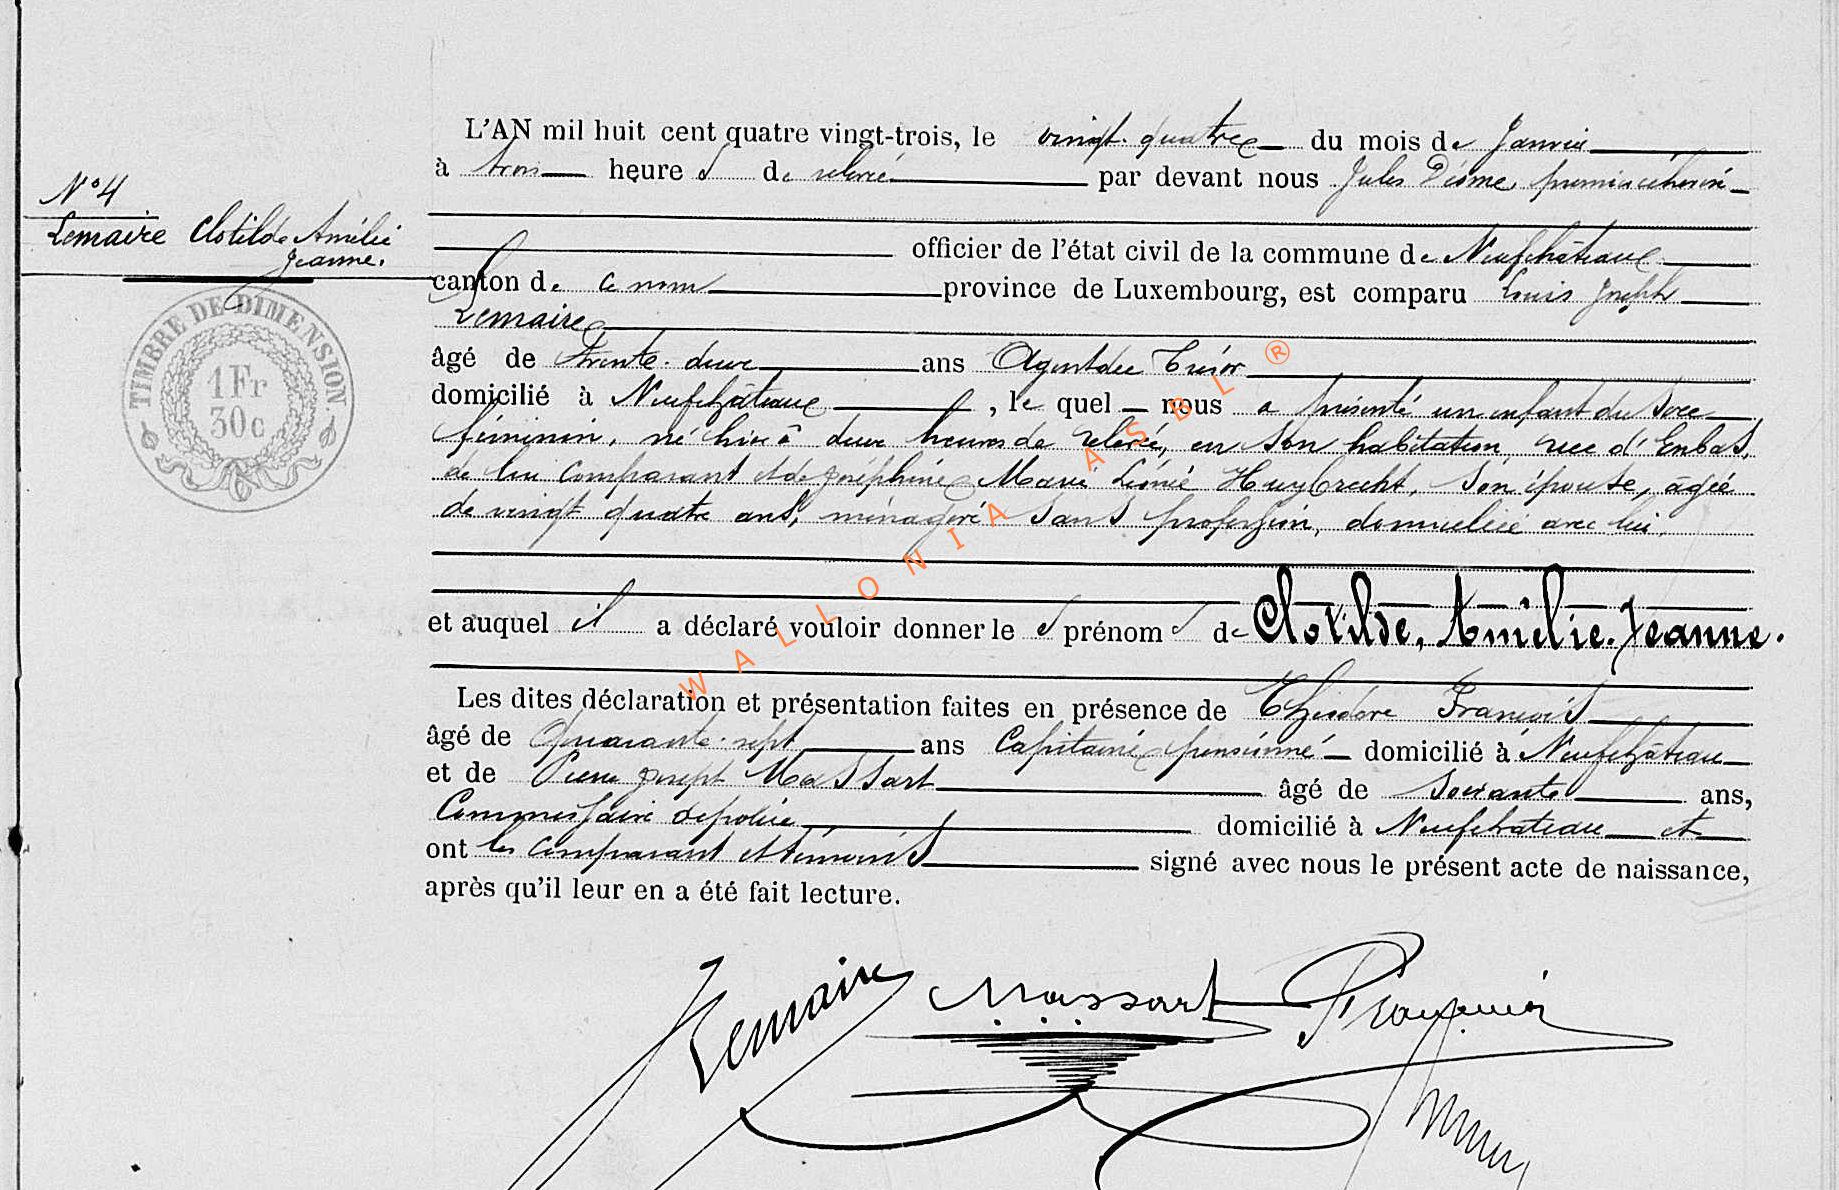 N° 4
Lemaire Clotilde Amélie
Jeanne.
TIMBRE DE DIMENSION.
1 Fr
30 c
L'AN mil huit cent quatre vingt-trois, le vingt-quatre du mois de Janvier
à trois heures de relevé par devant nous Jules premier échevin
officier de l'état civil de la commune de Neufchâteau
canton de ce nom province de Luxembourg, est comparu Louis Joseph
Lemaire
âgé de trente-deux ans Agent du Trésor
domicilié à Neufchâteau, lequel nous a présenté un enfant du sexe
féminin, né hier à deux heures de relevé, en son habitation, rue d'Enbas,
de lui comparant et de Joséphine Marie Léonie Huybrecht, son épouse, âgée
de vingt quatre ans, ménagère sans profession, domiciliée avec lui
et auquel il a déclaré vouloir donner les prénoms de Clotilde, Amélie, Jeanne.
Les dites déclaration et présentation faites en présence de Théodore François
âgé de quarante-sept ans Capitaine pensionné domicilié à Neufchâteau
et de Pierre Joseph Massart âgé de soixante ans,
Commissaire de police domicilié à Neufchateau et
ont les comparant et témoins signé avec nous le présent acte de naissance,
après qu'il leur en a été fait lecture.
Lemaire Massart François
WALLONIA ASBL ®